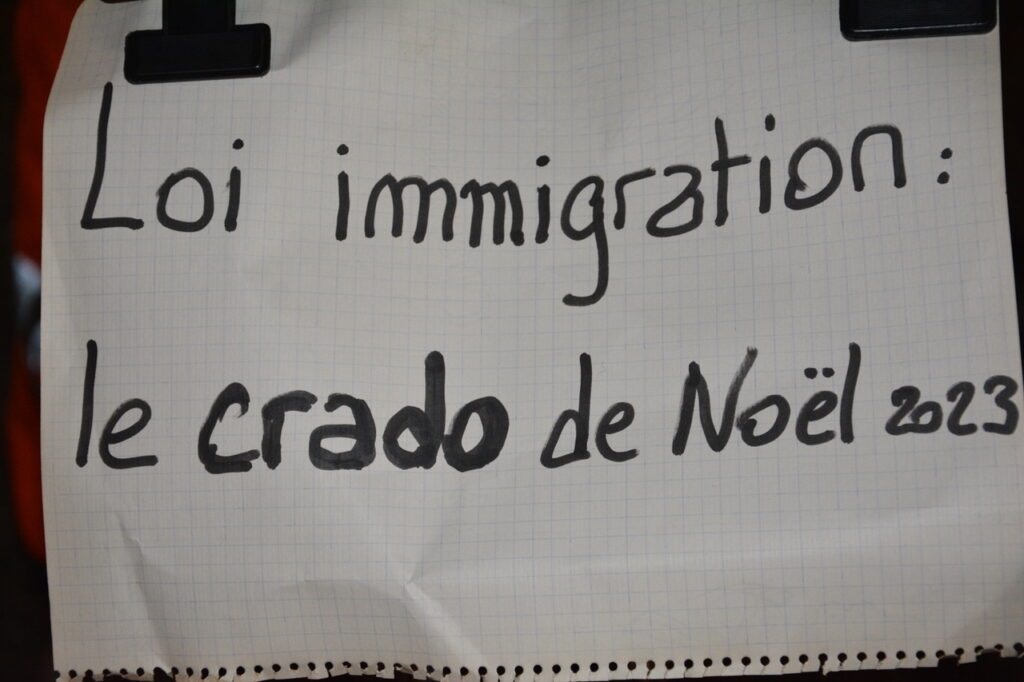 Loi immigration :
le crado de Noël 2023